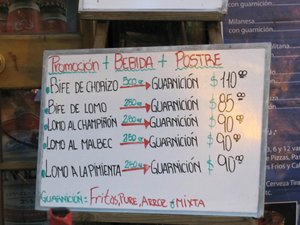 con guarnición.
Promoción + BEBIDA + POSTRE
BIFE DE CHORIZO 500gr GUARNICIÓN $110.00
BIFE DE LOMO 250gr GUARNICIÓN $85.00
LOMO AL CHAMPIÑÓN 250gr GUARNICIÓN $90.00
LOMO AL MALBEC 250gr GUARNICIÓN $90.00
LOMO A LA PIMIENTA 250gr GUARNICIÓN $90.00
GUARNICIÓN = Fritas, PURE, ARROZ ó MIXTA
Milanesa
con guarnición
3, 6 y 12 var
de Pizzas, Pa
Fríos y Cal
Cerveza Tira